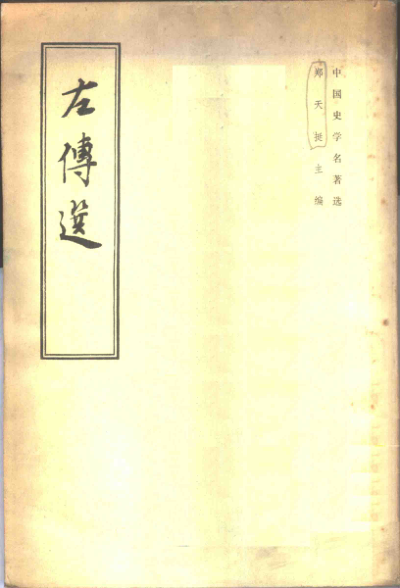 中国史学名著选
郑天挺主编
左傳選